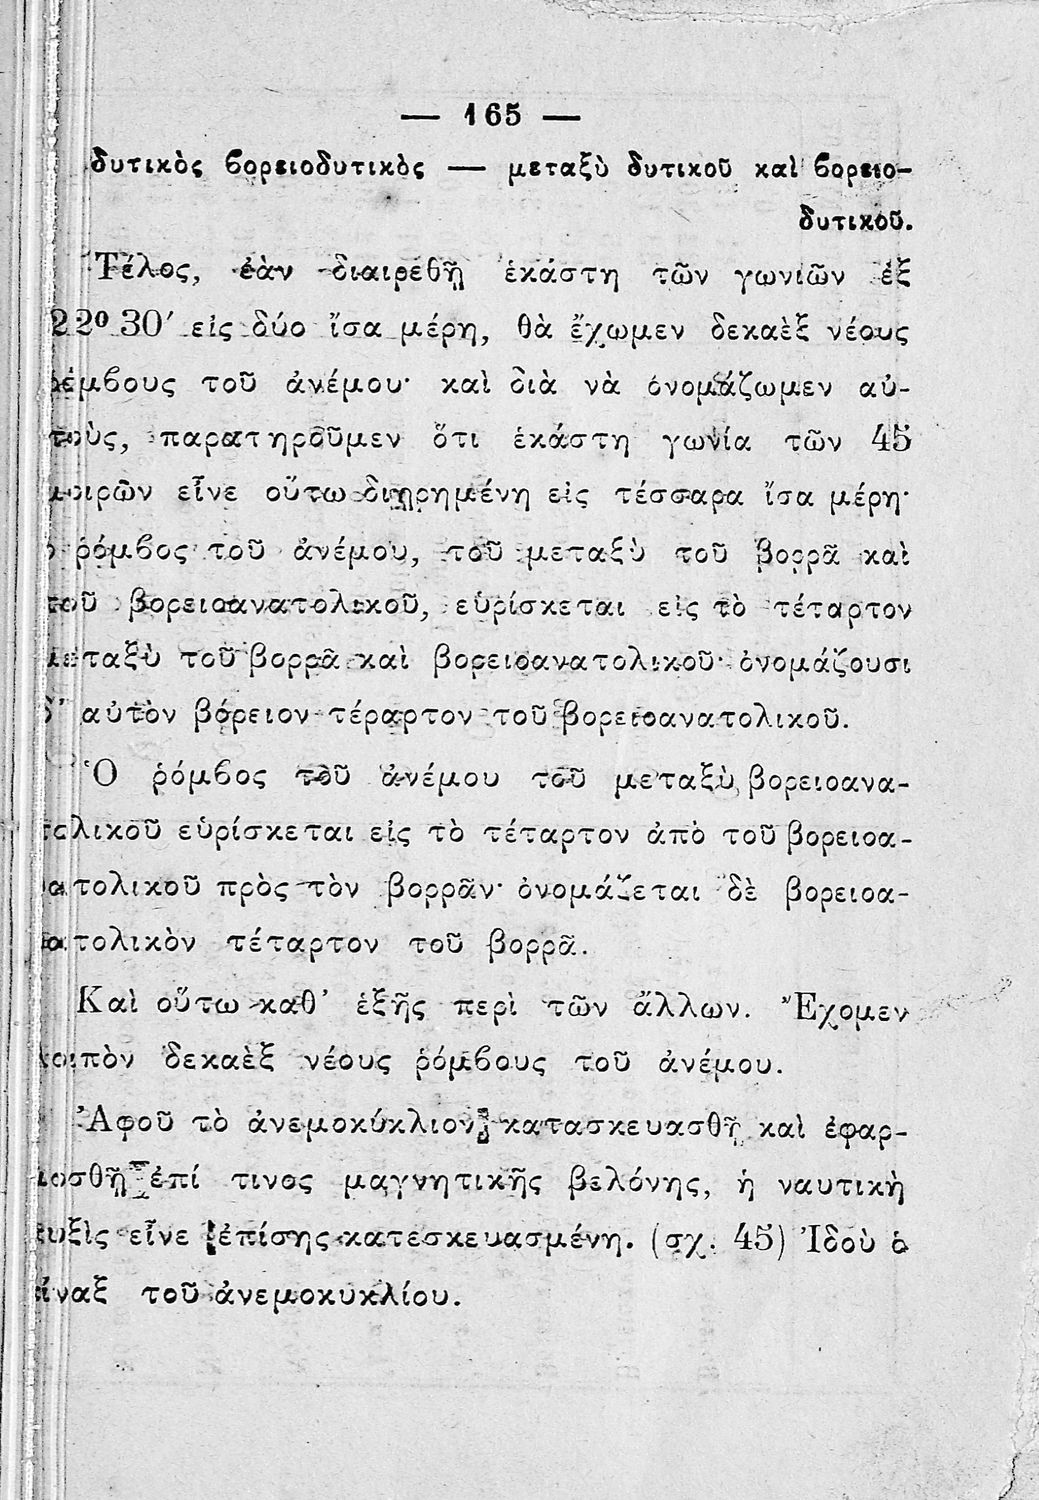 — 165 —
δυτικὸς βορειοδυτικὸς — μεταξὺ δυτικοῦ καὶ βορειο-
δυτικοῦ.
Τέλος, ἐὰν διαιρεθῇ ἑκάστη τῶν γωνιῶν ἐξ
22º 30′ εἰς δύο ἴσα μέρη, θὰ ἔχωμεν δεκαὲξ νέους
ῥόμβους τοῦ ἀνέμου· καὶ διὰ νὰ ὀνομάζωμεν αὐ-
τοὺς, παρατηροῦμεν ὅτι ἑκάστη γωνία τῶν 45
μοιρῶν εἶνε οὕτω διῃρημένη εἰς τέσσαρα ἴσα μέρη·
ὁ ῥόμβος τοῦ ἀνέμου, τοῦ μεταξὺ τοῦ βορρᾶ καὶ
τοῦ βορειοανατολικοῦ, εὑρίσκεται εἰς τὸ τέταρτον
μεταξὺ τοῦ βορρᾶ καὶ βορειοανατολικοῦ· ὀνομάζουσι
δ’ αὐτὸν βόρειον τέραρτον τοῦ βορειοανατολικοῦ.
Ὁ ῥόμβος τοῦ ἀνέμου τοῦ μεταξὺ βορειοανα-
τολικοῦ εὑρίσκεται εἰς τὸ τέταρτον ἀπὸ τοῦ βορειοα-
νατολικοῦ πρὸς τὸν βορρᾶν· ὀνομάζεται δὲ βορειοα-
νατολικὸν τέταρτον τοῦ βορρᾶ.
Καὶ οὕτω καθ’ ἑξῆς περὶ τῶν ἄλλων. Ἔχομεν
λοιπὸν δεκαὲξ νέους ῥόμβους τοῦ ἀνέμου.
Ἀφοῦ τὸ ἀνεμοκύκλιον κατασκευασθῇ καὶ ἐφαρ-
μοσθῇ ἐπί τινος μαγνητικῆς βελόνης, ἡ ναυτικὴ
πυξὶς εἶνε ἐπίσης κατεσκευασμένη. (σχ. 45) Ἰδοὺ ὁ
πίναξ τοῦ ἀνεμοκυκλίου.